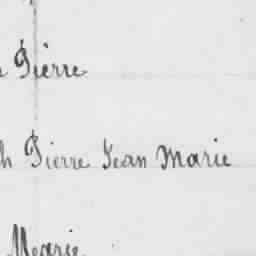 Pierre
h Pierre Jean Marie
Marie